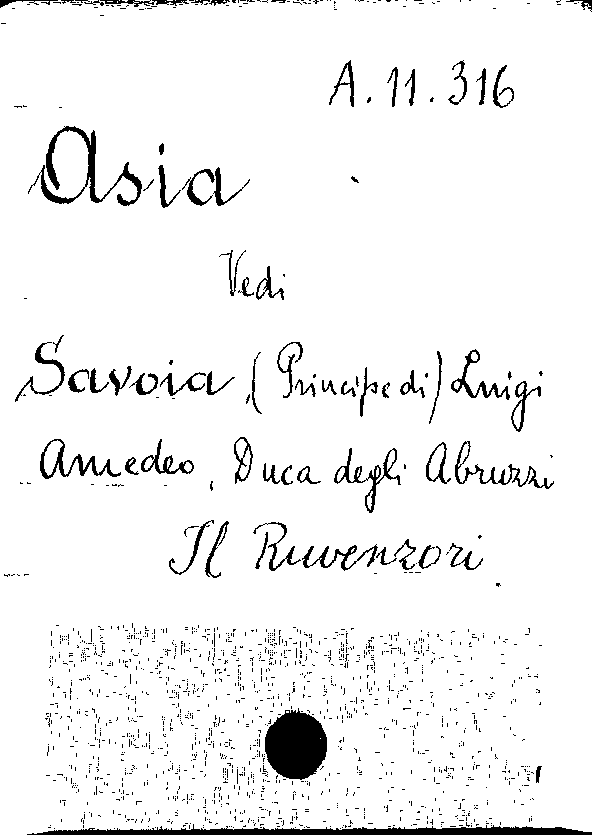 A. 11. 316
Asia
Vedi
Savoia (Principe di) Luigi
Amedeo, Duca degli Abruzzi
Il Ruwenzori